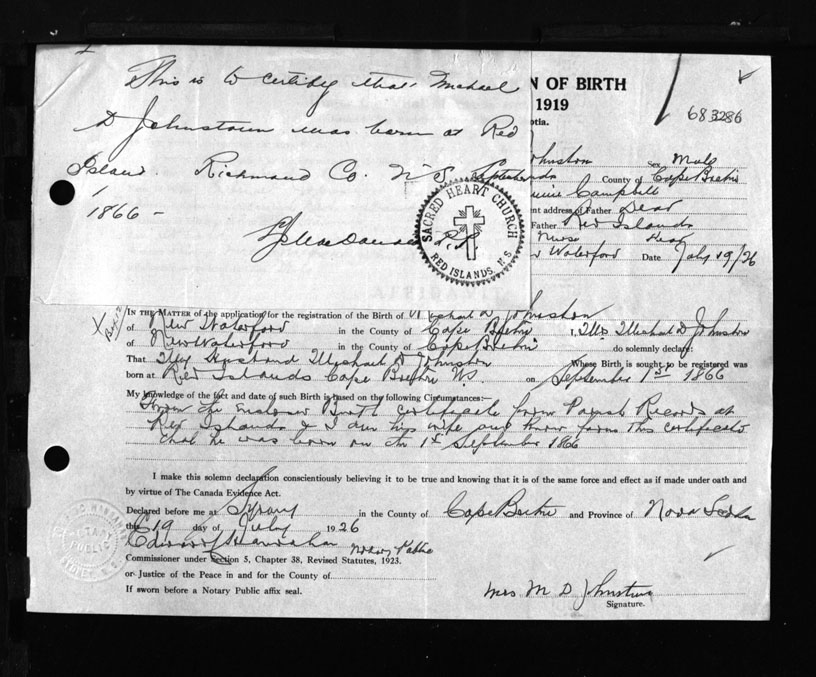 This is to certify that Michael
D Johnstown was born at Red
Island. Richmond Co. N S. September
1
1866 -
SACRED HEART CHURCH
RED ISLANDS, N.S.
N OF BIRTH
1919
otia.
683286
ohnston Sex Male
County of Cape Breton
Campbell
nt address of Father Dead
Father Red Islands
Nurse Dead
Waterford Date July 19/26
IN THE MATTER of the application for the registration of the Birth of Michael D Johnston
of New Waterford in the County of Cape Breton I, Mrs Michael D Johnston
of New Waterford in the County of Cape Breton do solemnly declare:
That My Husband Michael D Johnston Whose Birth is sought to be registered was
born at Red Islands Cape Breton N.S. on September 1st 1866
My knowledge of the fact and date of such Birth is based on the following Circumstances:—
From the enclosed Birth Certificate from Parish Records at
Red Islands & I am his wife and know from this certificate
that he was born on the 1st September 1866
I make this solemn declaration conscientiously believing it to be true and knowing that it is of the same force and effect as if made under oath and
by virtue of The Canada Evidence Act.
Declared before me at Sydney in the County of Cape Breton and Province of Nova Scotia
this 19 day of July 1926
Notary Public
Commissioner under Section 5, Chapter 38, Revised Statutes, 1923.
or Justice of the Peace in and for the County of
If sworn before a Notary Public affix seal.
Mrs M D Johnston
Signature.